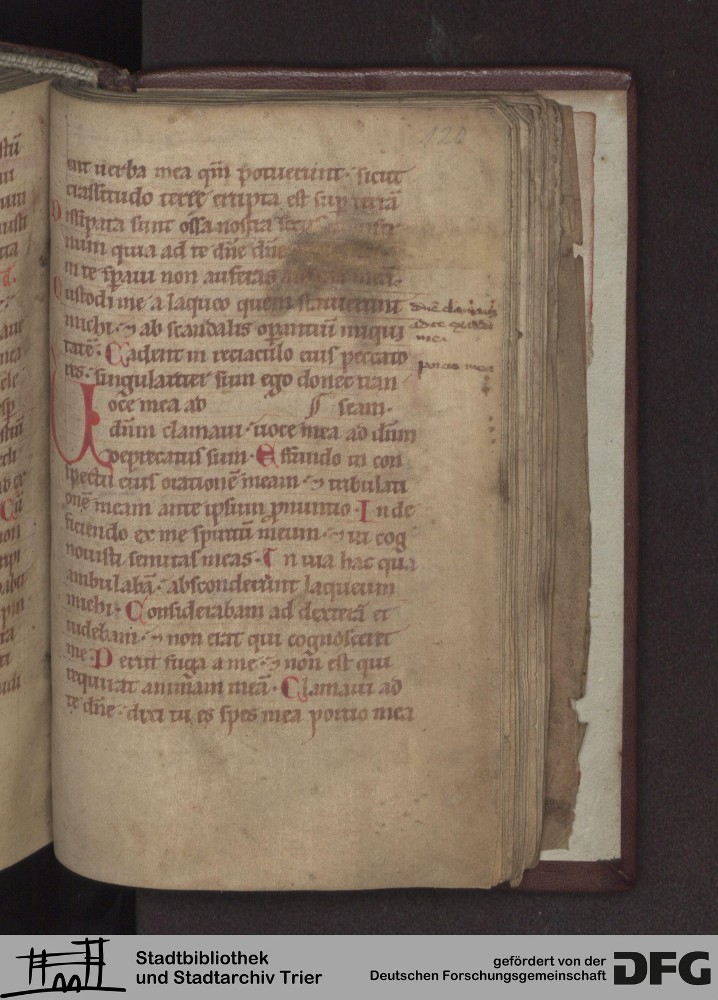 120
ent uerba mea qm̄ potuerunt· sicut
crassitudo terre erupta est sup terrā
Dissipata sunt ossa nostra
num quia ad te dn̄e dn̄e
in te spaui non auferas
Custodi me a laqueo quem statuerunt
michi· ⁊ ab scandalis opantiū iniqui
tatē· Cadent in retiaculo eius peccato
res· singulariter sum ego donec tran
Uoce mea ad seam·
dn̄m clamaui· uoce mea ad dn̄m
deprecatus sum· Effundo in con
spectu eius orationē meam· ⁊ tribulati
onē meam ante ipsum pnuntio· In de
ficiendo ex me spiritū meum· ⁊ tu cog
nouisti semitas meas· In uia hac qua
ambulabā· absconderunt laqueum
michi· Considerabam ad dexterā et
uidebam· ⁊ non erat qui cognosceret
me· Periit fuga a me· ⁊ non est qui
requirat animam meā· Clamaui ad
te dn̄e· dixi tu es spes mea portio mea
dn̄e clamaui
me·
portio mea
Stadtbibliothek
und Stadtarchiv Trier
gefördert von der
Deutschen Forschungsgemeinschaft
DFG